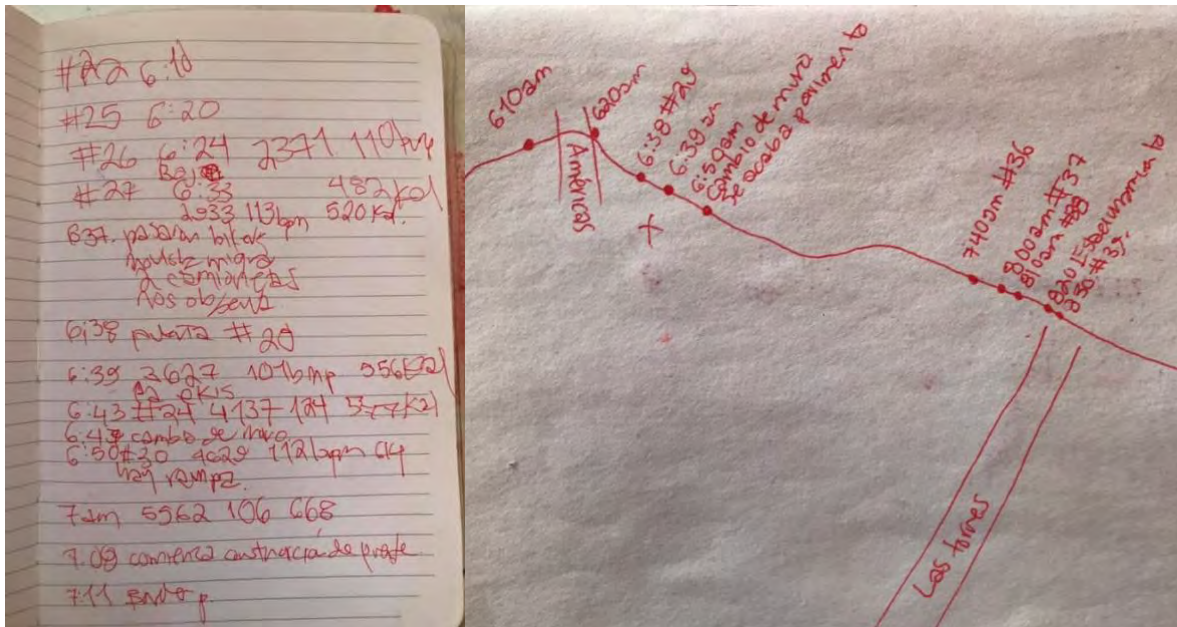 #22 6:10
#25 6:20
#26 6:24 2371 110
#27 6:33 482 Kcal
2933 113 bpm 520 Kcal.
6:37. pasaron
2 camionetas
nos observa
6:38 puerta #28
6:39 3627 101 bmp 556 Kcal
6:43 #24 4137 124 577 Kcal
cambio de muro
6:50 #30 4629 112 bpm 614
hay rampa.
7am 5562 106 668
7:09 comienza construcción de
7:11
610am
Américas
620am
6:38 #29
6:39 am
6:50am
Cambio de muro
se acaba pavimento
740am #36
800am #37
810am #38
820
830. #39.
Las torres